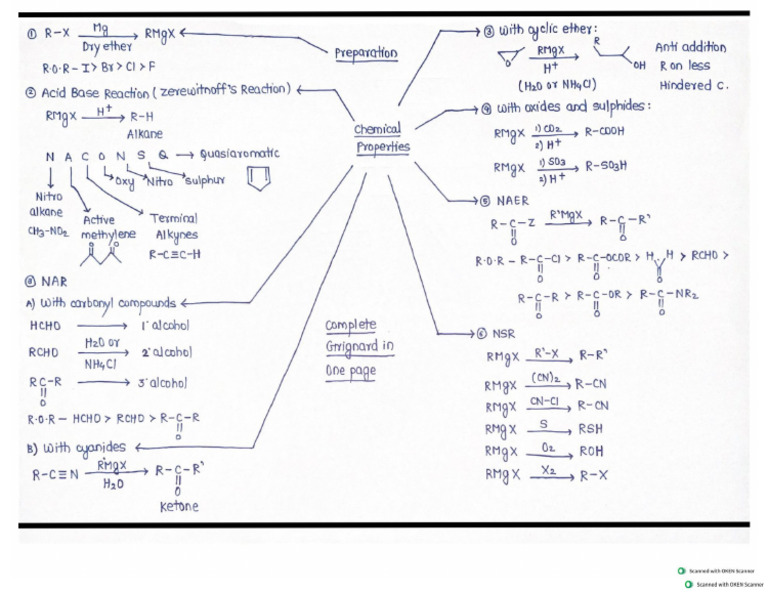 ① R-X Mg → RMgX
Dry ether
R·O·R - I > Br > Cl > F
Preparation
② Acid Base Reaction (zerewitnoff's Reaction)
RMgX H⁺ → R-H
Alkane
N A C O N S Q → Quasiaromatic
Oxy Nitro sulphur
Nitro alkane
CH₃-NO₂
Active methylene
Terminal Alkynes
R-C≡C-H
③ NAR
A) With carbonyl compounds
HCHO → 1° alcohol
RCHO H₂O or NH₄Cl → 2° alcohol
RC-R → 3° alcohol
O
R·O·R — HCHO > RCHO > R-C-R
O
B) With cyanides
R-C≡N RMgX → R-C-R'
H₂O O
Ketone
Chemical
Properties
Complete
Grrignard in
One page
③ with cyclic ether:
O RMgX → R OH
H⁺
(H₂O or NH₄Cl)
Anti addition
R on less
Hindered C.
④ with oxides and sulphides:
RMgX 1) CO₂ → R-COOH
2) H⁺
RMgX 1) SO₃ → R-SO₃H
2) H⁺
⑤ NAER
R-C-Z R'MgX → R-C-R'
O O
R·O·R - R-C-Cl > R-C-OCOR > H H > RCHO >
O O O
R-C-R > R-C-OR > R-C-NR₂
O O O
⑥ NSR
RMgX R'-X → R-R'
RMgX (CN)₂ → R-CN
RMgX CN-Cl → R-CN
RMgX S → RSH
RMgX O₂ → ROH
RMgX X₂ → R-X
Scanned with OKEN Scanner
Scanned with OKEN Scanner